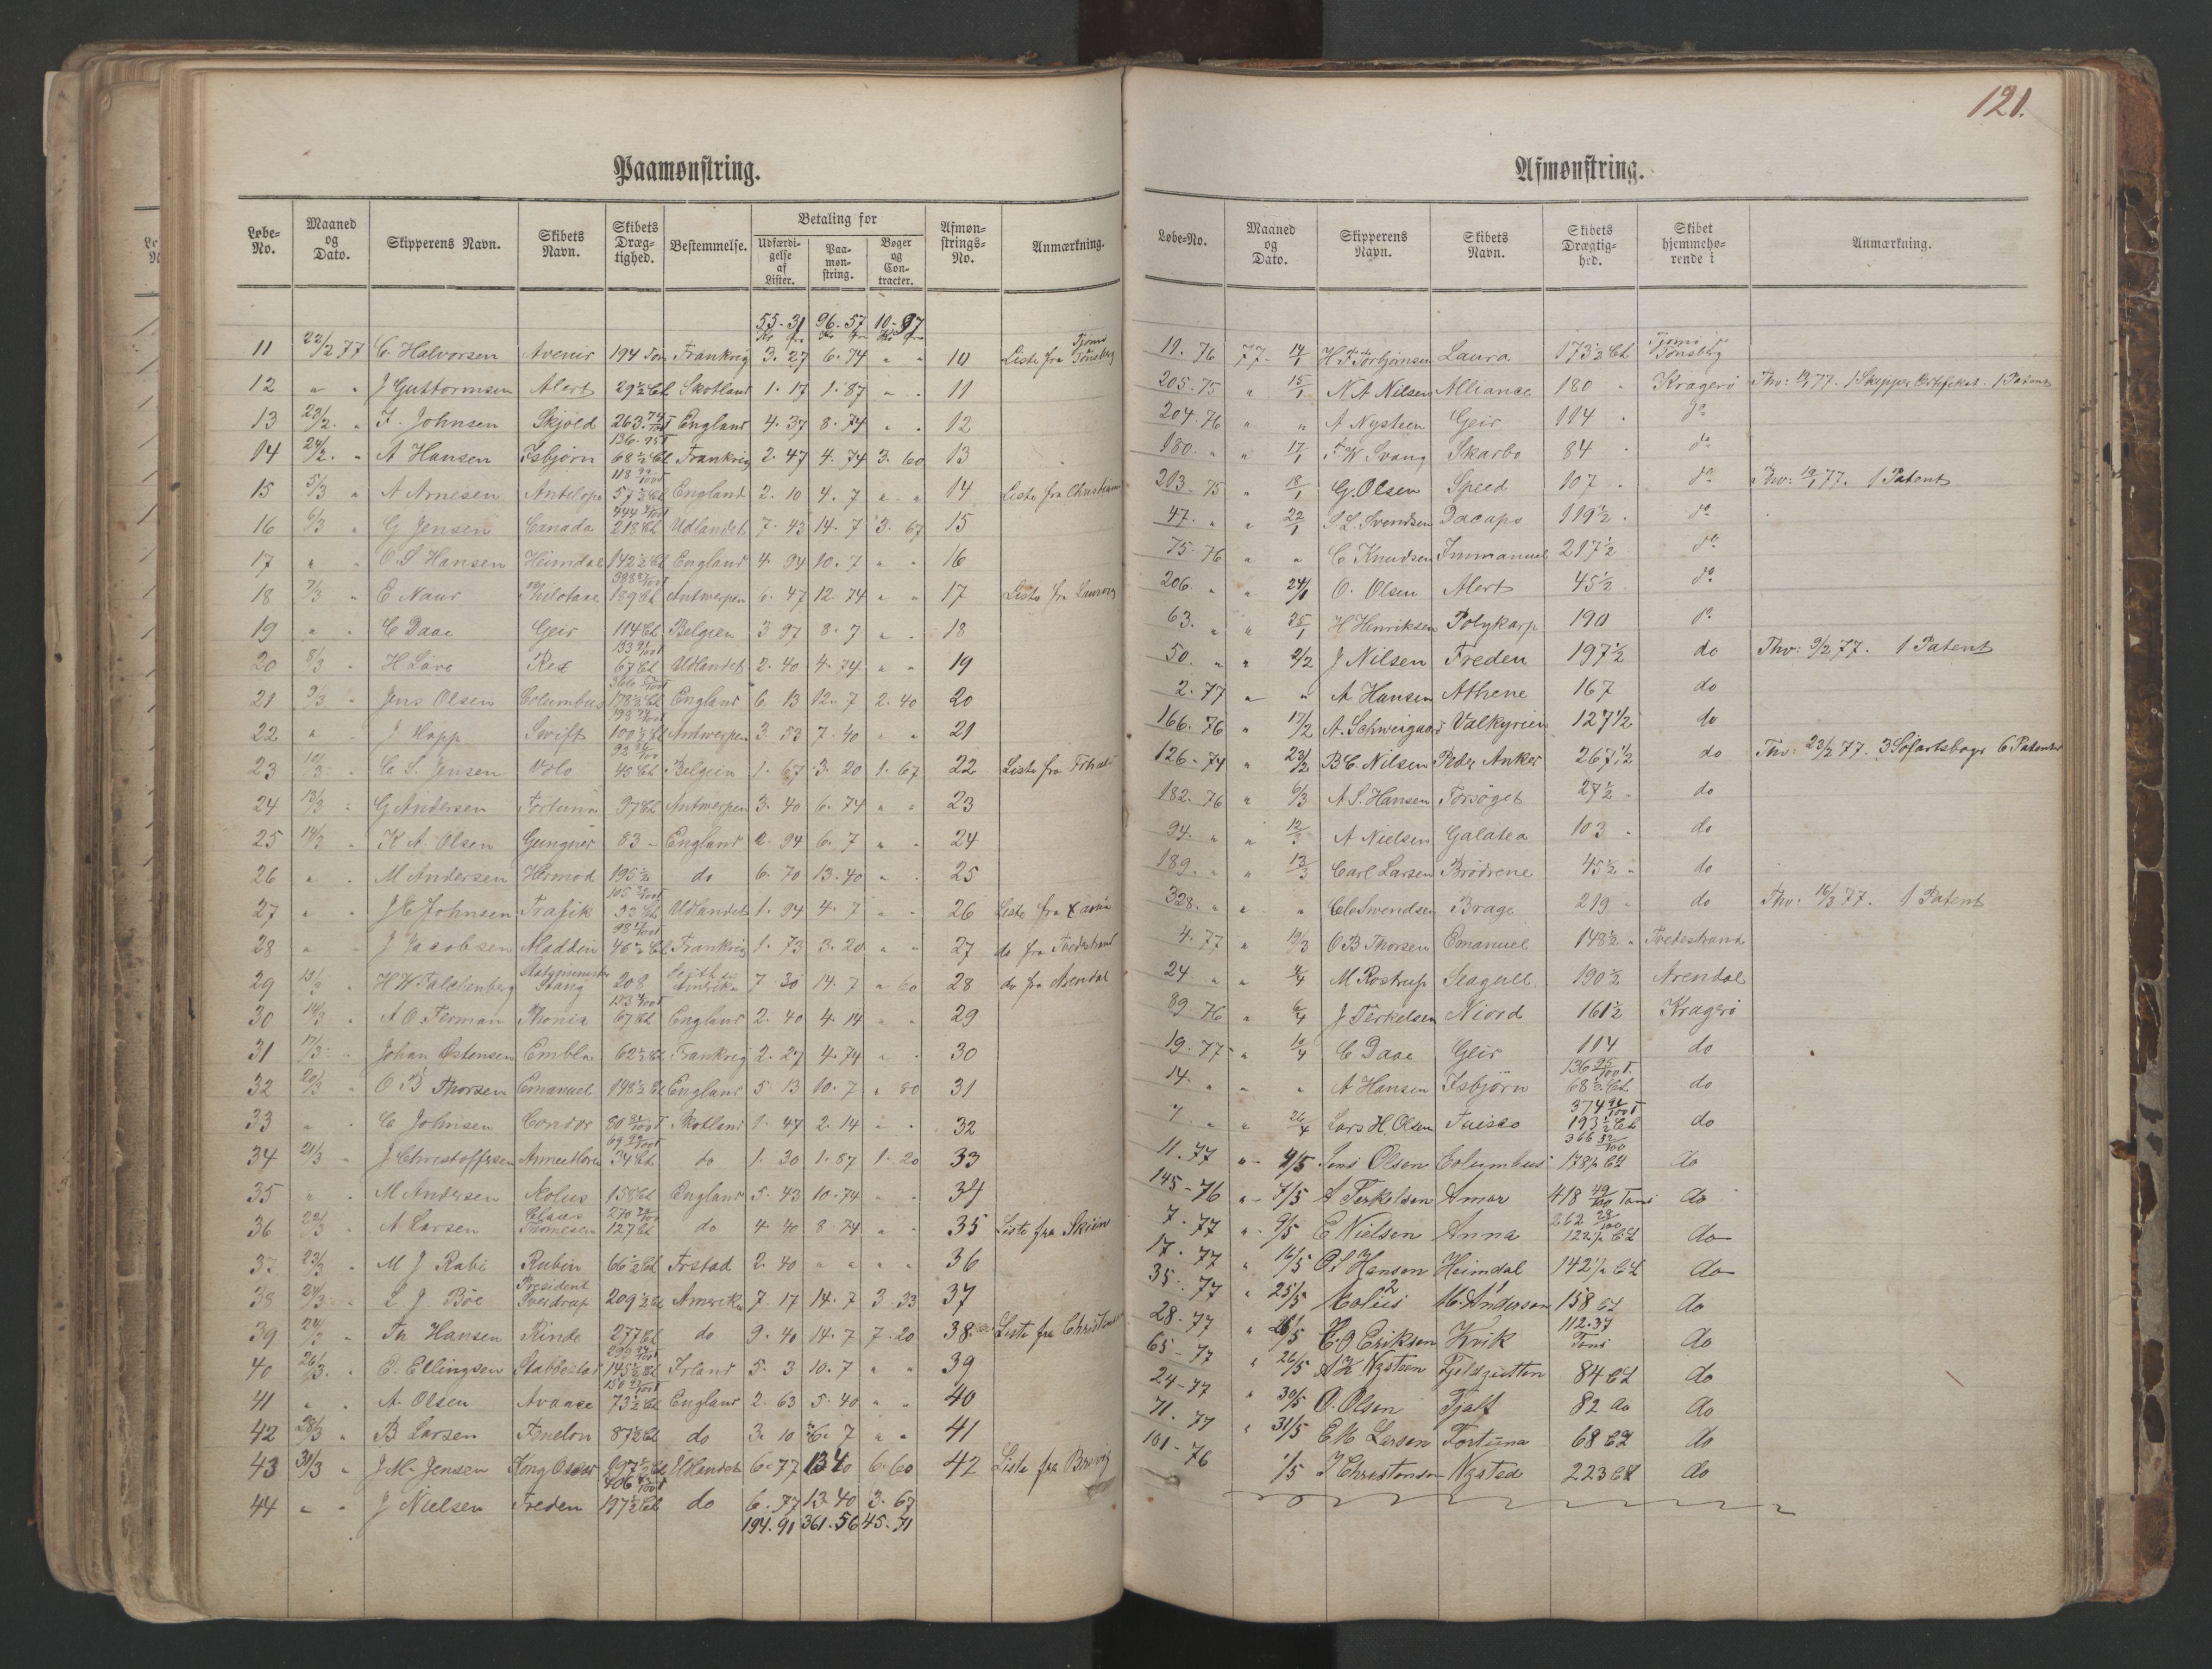 121.
Paamønstring.
Løbe-No. | Maaned og Dato. | Skipperens Navn. | Skibets Navn. | Skibets Dræg-tighed. | Bestemmelse. | Betaling for | Udfærdi-gelse af Lister. | Paa-møn-string. | Bøger og Con-tracter. | Afmøn-strings-No. | Anmærkning.
55.31 96.57 10.97
11 22/2 77 C. Halvorsen Avenir 194 Ton Frankrig 3.27 6.74 " " 10 Liste fra Tjømø Tønsberg
12 " " J Guttormsen Alert 29½ Cl Skotland 1.17 1.87 " . 11
13 23/2 " J. Johnsen Skjold 263 74/100T England 4.37 8.74 " . 12
14 24/2 " A Hansen Isbjørn 136.95T 68½ Cl Frankrig 2.47 4.74 3.60 13
15 5/3 " A Arnesen Antelope 57½ Cl England 2.10 4.7 " " 14 Liste fra
16 6/3 " G Jensen Canada 218 Cl Udlandet 7.43 14.7 3.67 15
17 " " O S Hansen Heimdal 142½ Cl England 4.94 10.7 " " 16
18 7/3 " E Naur 189 Cl Antwerpen 6.47 12.74 " " 17 Liste fra
19 " " C Daae Geir 114 Cl Belgien 3 97 8.7 " . 18
20 8/3 " H Løvo Rex 67 Cl Udlandet 2.40 4.74 " " 19
21 9/3 " Jens Olsen Columbus 178½ Cl England 6.13 12.7 2.40 20
22 " " J Hopp Swift 100½ Cl Antwerpen 3.53 7.40 " " 21
23 10/3 " C. S. Jensen 45 Cl Belgien 1.67 3.20 1.67 22 Liste fra
24 13/3 " G Andersen Fortuna 97 Cl Antwerpen 3.40 6.74 " " 23
25 14/3 " K A. Olsen Gungner 83 - England 2.94 6.7 " . 24
26 " . M Andersen Hermod 195½ do 6.70 13.40 " . 25
27 " . J C Johnsen Trafik 53 Cl Udlandet 1.94 4.7 " . 26 Liste fra
28 " J Jacobsen Aladdin 46½ Cl Frankrig 1.73 3.20 " " 27 do fra Tvedestrand
29 13/3 " H H Falchenberg Statsminister Stang 208 Amerika 7.30 14.7 " 60 28 do fra Arendal
30 14/3 " A O. Firman 67 Cl England 2.40 4.14 " " 29
31 17/3 Johan Østensen Embla 62½ Cl Frankrig 2.27 4.74 " . 30
32 20/3 " O B Thorsen Emanuel 148½ Cl England 5.13 10.7 " 80 31
33 " . C Johnsen Condor 80 T Skotland 1.47 2.14 " . 32
34 21/3 " J Christoffersen 34 Cl do 1.30 1.87 1.20 33
35 " . M Andersen Æolus 158 Cl England 5.43 10.74 " . 34
36 22/3 " A Larsen Claus Thomesen 127 Cl do 4.40 8.74 " " 35 Liste fra Skien
37 23/3 " M J Rabe Rubin 66½ Cl Irstad 2.40 " " " " 36
38 24/3 " L J Böe President Sverdrup 209½ Cl Amerika 7.17 14.7 3.33 37
39 24/3 " Th Hansen Rinde 277 Cl do 9.40 14.7 7.20 38 Liste fra
40 26/3 " E. Ellingsen 145½ Cl Irland 5.3 10.7 " " 39
41 " . A. Olsen Avance 73½ Cl England 2.63 5.40 " " 40
42 28/3 " B Larsen Fenelon 87½ Cl do 3.10 6.7 " " 41
43 31/3 " J M. Jensen Kong Oscar 197½ Cl Udlandet 6.77 13 40 6.60 42 Liste fra Brevig
44 " " J Nielsen Freden 197½ Cl do 6.77 13.40 3.67
194.91 361.56 45.71
Afmønstring.
Løbe-No. | Maaned og Dato. | Skipperens Navn. | Skibets Navn. | Skibets Drægtig-hed. | Skibet hjemmehø-rende i | Anmærkning.
11. 76 77 - 14/1 H F Torbjørnsen Laura 173½ Cl Tjømø pr Tønsberg
205.75 " 15/1 N A Nilsen Alliance 180 " Kragerø 1 Skipper Certifikat. 1 Patent
204.76 " " A Nysteen Geir 114 . do
180. " " 17/1 F W Svang Skarbo 84 . do
203.75 " 18/1 G. Olsen Speed 107 . do Thv: 19/1 77. 1 Patent
47. " " 22/1 S L. Svendsen Dacapo 119½ . do
75.76 " " C Knudsen Immanuel 217½ do
206. " " 24/1 O. Olsen Alert 45½ do
63. " " 25/1 H Henriksen Polykarp 190 do
50. " " 2/2 J Nilsen Freden 197½ do Thv: 9/2 77. 1 Patent
2.77 " " A Hansen Athene 167 do
166.76 " 17/2 A. Schweigaard Valkyrien 127½ do
126-74 " 23/2 B C. Nilsen Peder Anker 267½ do Thv: 23/2 77. 3 Søfartsbøger 6 Patenter
182.76 " 6/3 A S. Hansen Forsøget 27½ - do
94. " " 12/3 A Nielsen Galatea 103 - do
189. " " 13/3 Carl Larsen Brødrene 45½ " do
328. " " " Ole Svendsen Brage 219 - do Thv: 16/3 77. 1 Patent
4.77 " 19/3 O B Thorsen Emanuel 148½ " Tvedestrand
24 " " 4/4 M Rostrup Seagull 190½ Arendal
89 76 " 6/4 J Terkelsen Niord 161½ Kragerø
19.77 " 10/4 C Daae Geir 114 do
14. " " " A Hansen Isbjørn 136 95/100T. 68½ Cl do
7. " " 26/4 Lars H. Olsen 193½ Cl do
11.77 "- 4/5 Jens Olsen Columbus 366 52/100 178½ Cl do
145-76 "- 7/5 A Terkelsen Amor 418 49/100 Tons do
7.77 "- 9/5 E Nielsen Anna 262 122½ Cl do
17.77 " 16/5 O S Hansen Heimdal 142½ Cl do
35.77 " 25/5 Æolus 2 M. Andersen 1 158 Cl do
28-77 " 26/5 C. O Eriksen Kvik 112.37 Tons do
65-77 " 26/5 A H Nysteen Fjeldgutten 84 Cl do
24-77 " 30/5 O. Olsen Tjalf 82 do do
71.77 " 31/5 E M Larsen Fortuna 68 Cl do
101-76 1/5 J Christensen Nysted 223 Cl do